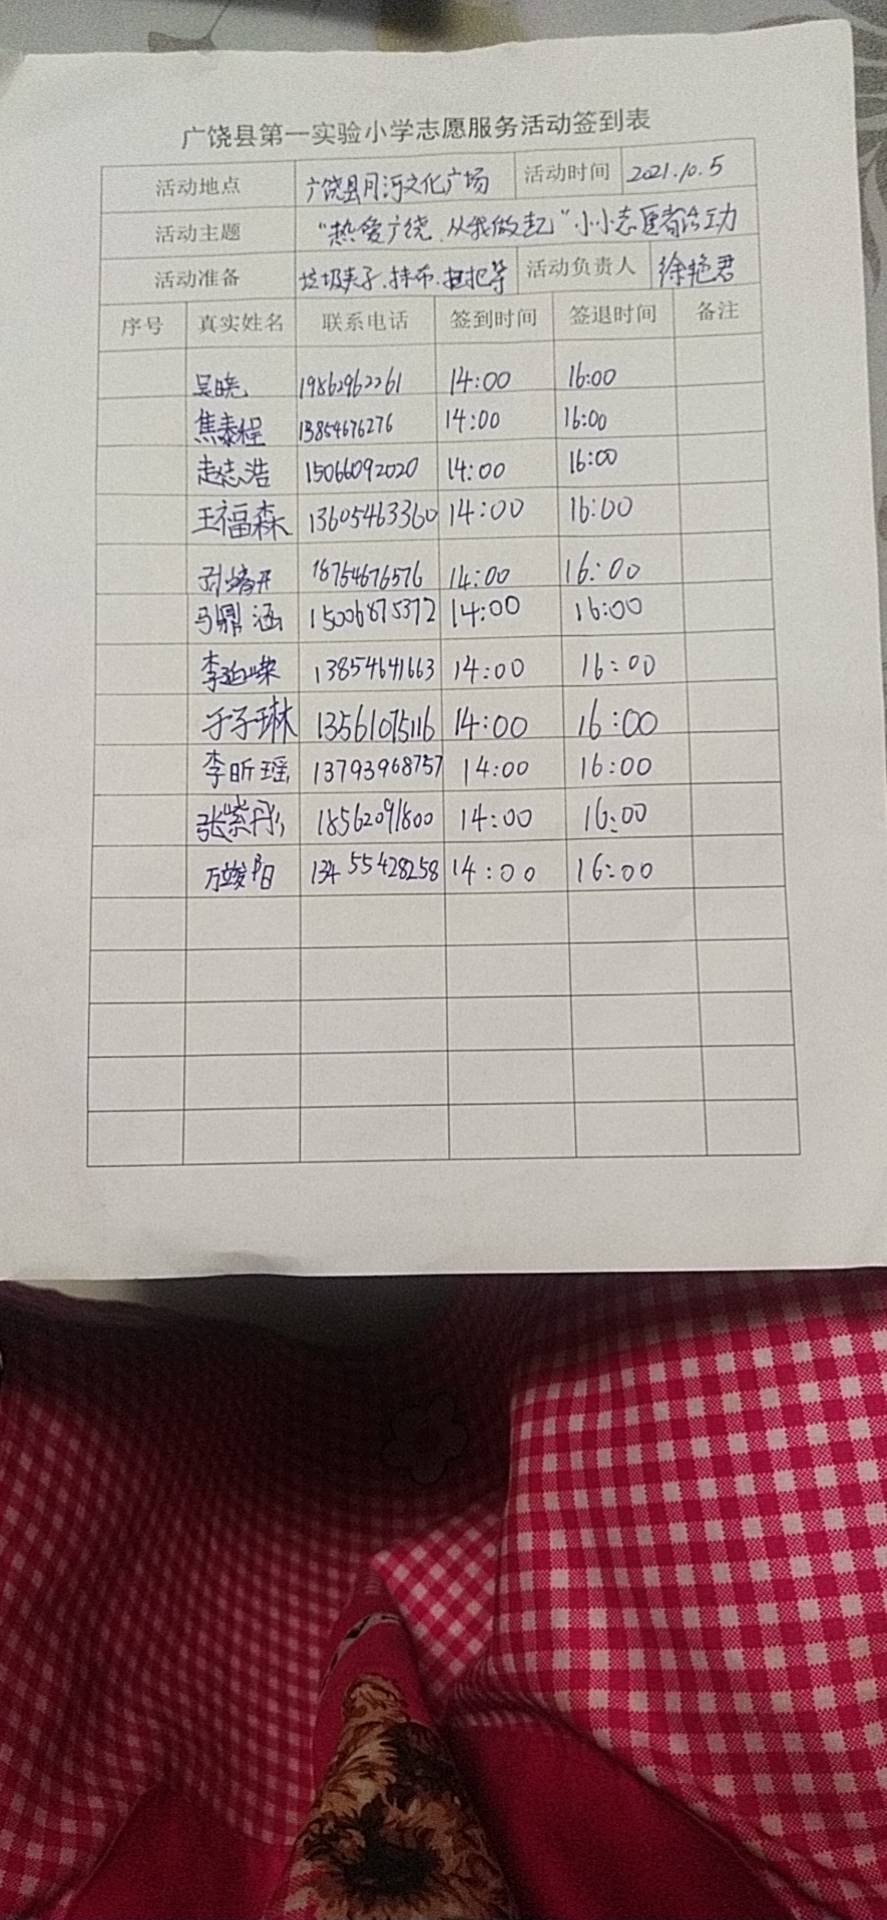 广饶县第一实验小学志愿服务活动签到表
活动地点 广饶县月河文化广场 活动时间 2021.10.5
活动主题 “热爱广饶、从我做起”小小志愿者活动
活动准备 垃圾夹子.抹布.拖把等 活动负责人 徐艳君
序号 真实姓名 联系电话 签到时间 签退时间 备注
吴晓 19862962261 14:00 16:00
焦泰程 13854676276 14:00 16:00
赵志浩 15066092020 14:00 16:00
王福森 13605463360 14:00 16:00
18754676576 14:00 16:00
马鼎涵 15006875372 14:00 16:00
13854641663 14:00 16:00
于子琳 13561075116 14:00 16:00
李昕瑶 13793968757 14:00 16:00
张紫彤 18562091800 14:00 16:00
万竣阳 13455428258 14:00 16:00